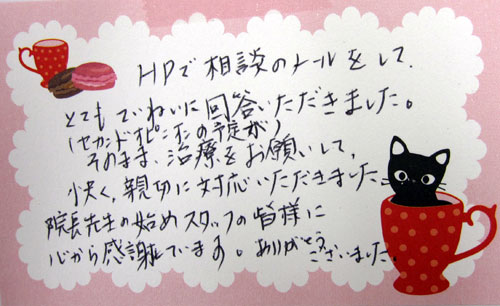 HPで相談のメールをして、
とてもていねいに回答いただきました。
(セカンドオピニオンの予定が)
そのまま、治療をお願いして、
快く、親切に対応いただきました。
院長先生の始めスタッフの皆様に
心から感謝しています。ありがとうございました。